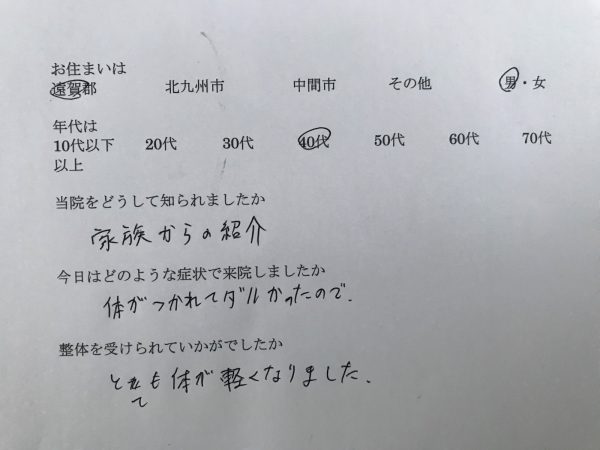 お住まいは
遠賀郡 北九州市 中間市 その他 男・女
年代は
10代以下 20代 30代 40代 50代 60代 70代
以上
当院をどうして知られましたか
家族からの紹介
今日はどのような症状で来院しましたか
体がつかれてダルかったので.
整体を受けられていかがでしたか
とても体が軽くなりました.